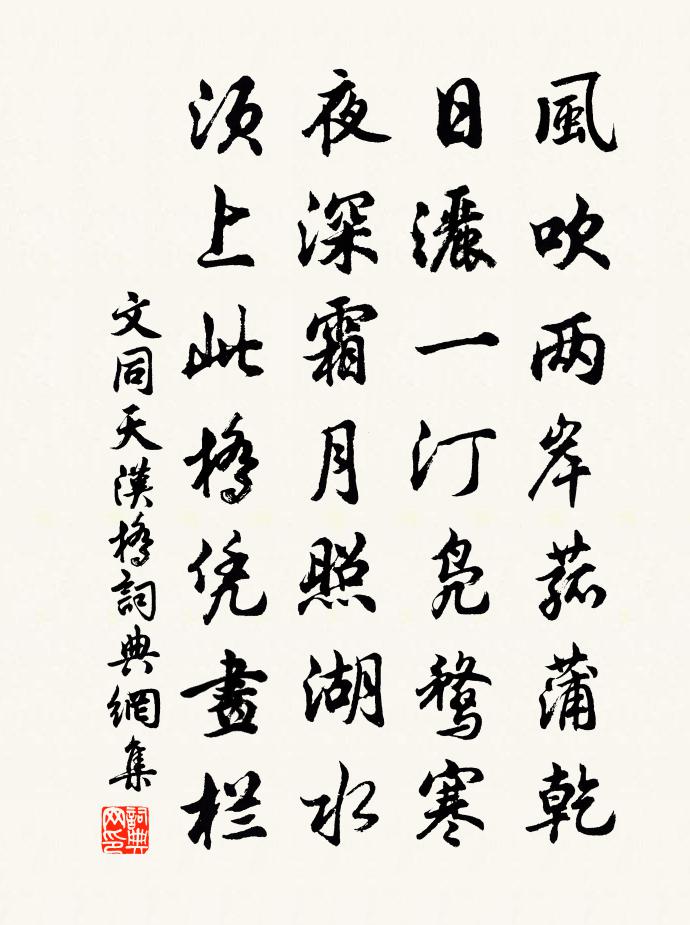 風吹两岸菰蒲乾
日灑一汀凫鶩寒
夜深霜月照湖水
须上此橋凭畫栏
文同天漢橋詞典網集
詞典网印